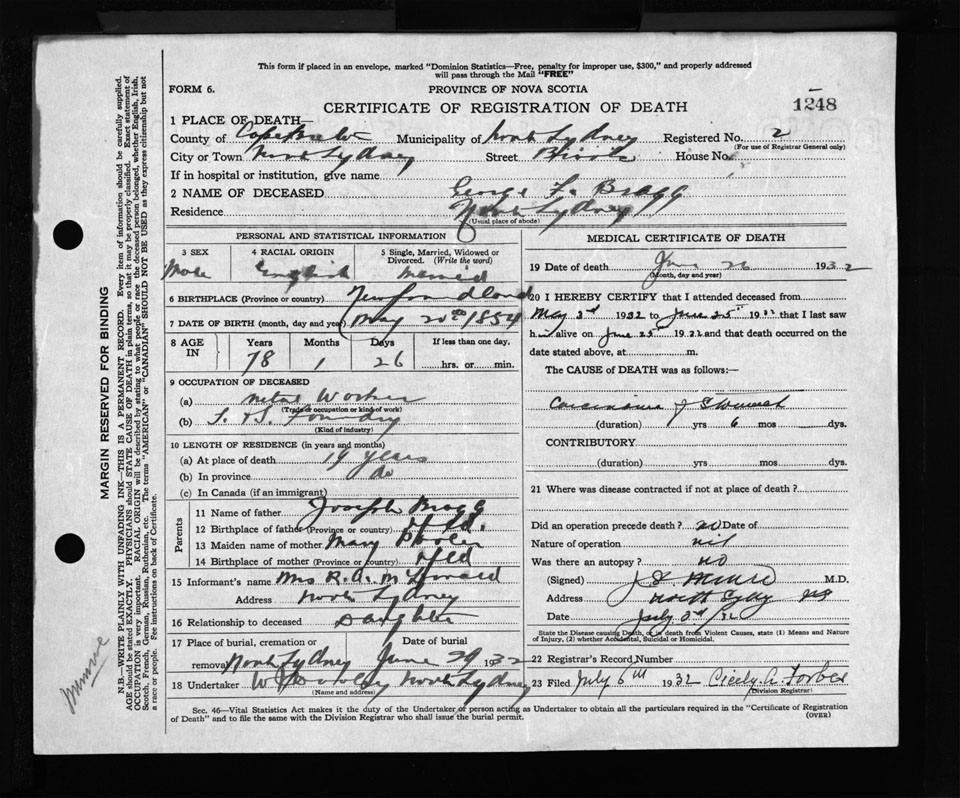 This form if placed in an envelope, marked "Dominion Statistics—Free, penalty for improper use, $300," and properly addressed
will pass through the Mail "FREE"
FORM 6.
PROVINCE OF NOVA SCOTIA
CERTIFICATE OF REGISTRATION OF DEATH
1248
1 PLACE OF DEATH—
County of Cape Breton Municipality of North Sydney Registered No. 2
(For use of Registrar General only)
City or Town North Sydney Street House No.
If in hospital or institution, give name
2 NAME OF DECEASED George F. Bragg
Residence North Sydney
(Usual place of abode)
PERSONAL AND STATISTICAL INFORMATION
3 SEX 4 RACIAL ORIGIN 5 Single, Married, Widowed or
Divorced. (Write the word)
Male English Married
6 BIRTHPLACE (Province or country) Newfoundland
7 DATE OF BIRTH (month, day and year) May 20th 1854
8 AGE IN Years Months Days If less than one day,
78 1 26 hrs. or min.
9 OCCUPATION OF DECEASED
(a) Metal Worker
(Trade or occupation or kind of work)
(b) Foundry
(Kind of industry)
10 LENGTH OF RESIDENCE (in years and months)
(a) At place of death 19 years
(b) In province do
(c) In Canada (if an immigrant)
Parents
11 Name of father Joseph Bragg
12 Birthplace of father (Province or country) Nfld.
13 Maiden name of mother Mary
14 Birthplace of mother (Province or country) Nfld
15 Informant's name Mrs R. A. M.
Address North Sydney
16 Relationship to deceased Daughter
17 Place of burial, cremation or Date of burial
removal North Sydney June 29 1932
18 Undertaker W North Sydney
(Name and address)
MEDICAL CERTIFICATE OF DEATH
19 Date of death June 26 1932
(Month, day and year)
20 I HEREBY CERTIFY that I attended deceased from
May 3rd 1932 to June 25th 1932 that I last saw
him alive on June 25th 1932 and that death occurred on the
date stated above, at m.
The CAUSE of DEATH was as follows:—
Carcinoma of Stomach
(duration) yrs 6 mos dys.
CONTRIBUTORY
(duration) yrs mos dys.
21 Where was disease contracted if not at place of death?
Did an operation precede death? no Date of
Nature of operation nil
Was there an autopsy? no
(Signed) M.D.
Address North Sydney NS
Date July 3rd /32
State the Disease causing Death, or in death from Violent Causes, state (1) Means and Nature
of Injury, (2) whether Accidental, Suicidal or Homicidal.
22 Registrar's Record Number
23 Filed July 6th 1932 Cicely. A. Forbes
(Division Registrar)
Sec. 46—Vital Statistics Act makes it the duty of the Undertaker or person acting as Undertaker to obtain all the particulars required in the "Certificate of Registration
of Death" and to file the same with the Division Registrar who shall issue the burial permit. (OVER)
MARGIN RESERVED FOR BINDING
N.B.—WRITE PLAINLY WITH UNFADING INK—THIS IS A PERMANENT RECORD. Every item of information should be carefully supplied.
AGE should be stated EXACTLY. PHYSICIANS should STATE CAUSE OF DEATH in plain terms, so that it may be properly classified. Exact statement of
OCCUPATION is very important. RACIAL ORIGIN will be described by stating to what people or race the deceased person belonged, whether English, Irish,
Scotch, French, German, Russian, Ruthenian, etc. The terms "AMERICAN" or "CANADIAN" SHOULD NOT BE USED as they express citizenship but not
a race or people. Fee instructions on back of Certificate.